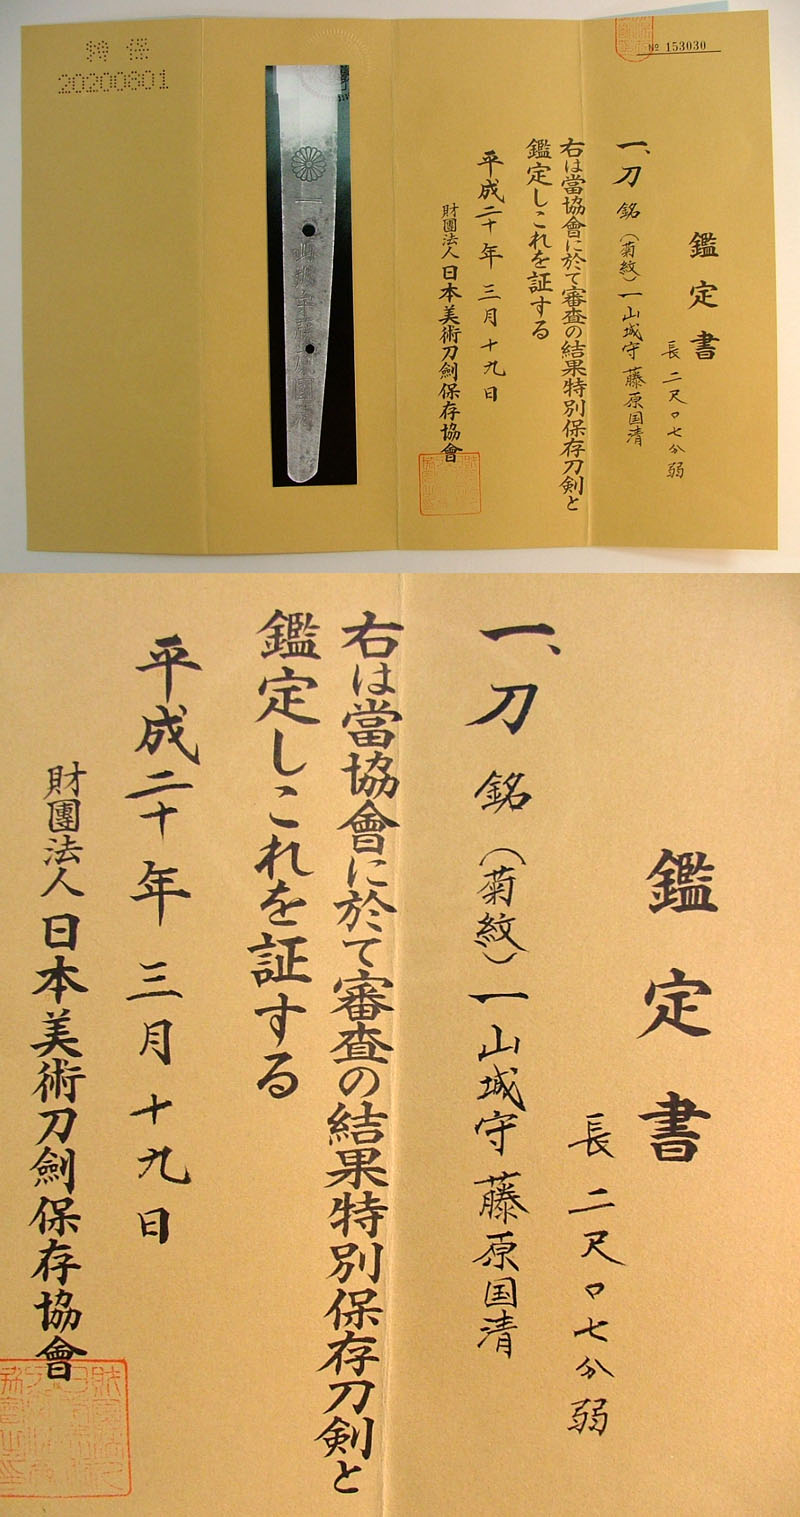 特保
20200801
№ 153030
鑑定書
長 二尺口七分弱
一、刀 銘 (菊紋) 一 山城守藤原国清
右は當協會に於て審査の結果特別保存刀剣と
鑑定しこれを証する
平成二十年 三月十九日
財團法人 日本美術刀劍保存協會
鑑定書
長 二尺口七分弱
一、刀 銘 (菊紋) 一 山城守藤原国清
右は當協會に於て審査の結果特別保存刀剣と
鑑定しこれを証する
平成二十年 三月十九日
財團法人 日本美術刀劍保存協會